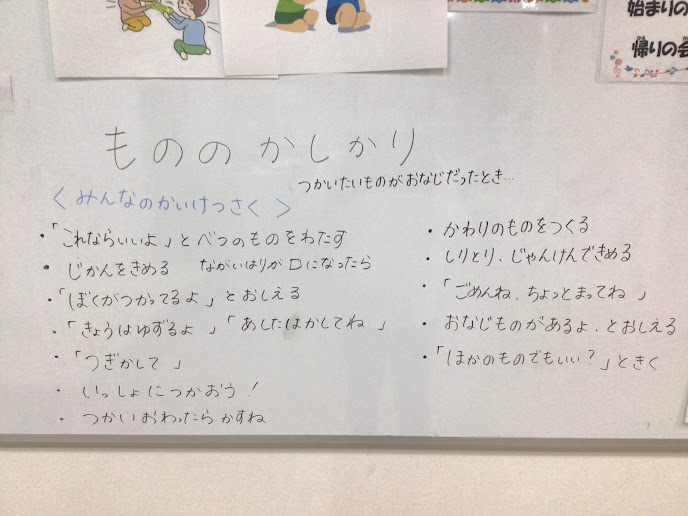 始まりの
帰りの会
もののかしかり
つかいたいものがおなじだったとき…
＜みんなのかいけつさく＞
・「これならいいよ」とべつのものをわたす
・じかんをきめる　ながいはりが□になったら
・「ぼくがつかってるよ」とおしえる
・「きょうはゆずるよ」「あしたはかしてね」
・「つぎかして」
・いっしょにつかおう！
・つかいおわったらかすね
・かわりのものをつくる
・しりとり、じゃんけんできめる
・「ごめんね、ちょっとまってね」
・おなじものがあるよ、とおしえる
・「ほかのものでもいい？」ときく